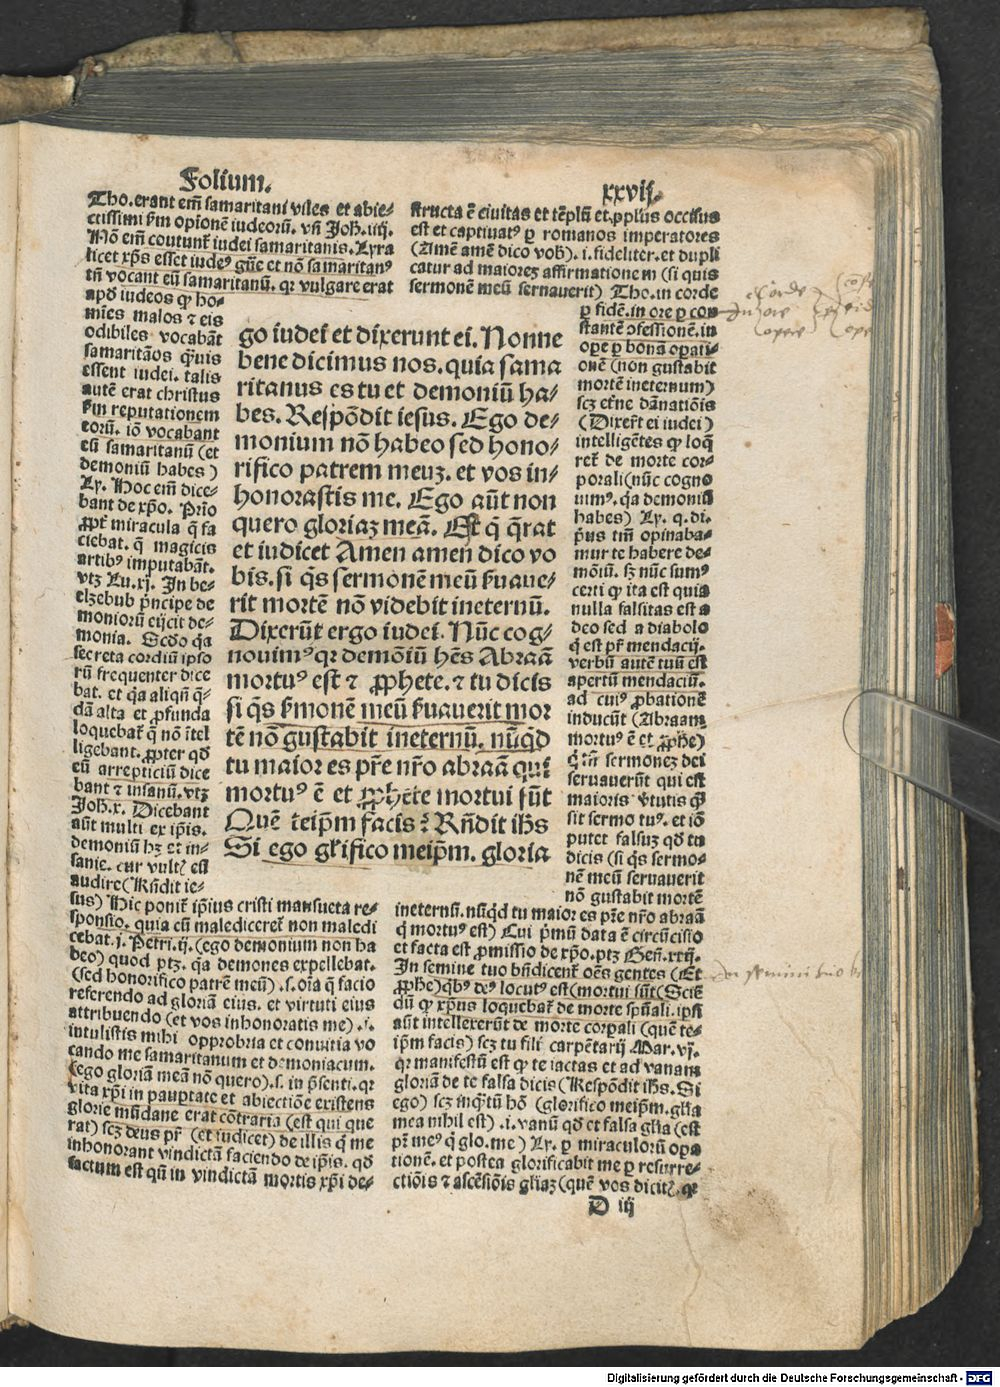 Folium. xxvij.
Tho. erant em̄ samaritani viles et abie-
ctissimi ẜm opionē iudeorū. vñ Joh̄. iiij.
Nō em̄ coutunt̄ iudei samaritanis. Lyra
licet xp̄s esset iudeꝰ gn̄e et nō samaritanꝰ
tñ vocant eū samaritanū. qꝛ vulgare erat
apd̄ iudeos ꝙ ho-
mīes malos ⁊ eis
odibiles vocabāt
samaritāos q̄uis
essent iudei. talis
autē erat christus
ẜm reputationem
eorū. iō vocabant
eū samaritanū (et
demoniū habes)
Ly. Hoc em̄ dice-
bant de xp̄o. Prīo
ꝓpt̄ miracula q̄ fa
ciebat. q̄ magicis
artibꝰ imputabāt.
vtꝫ Lu. xj. In be-
elzebub p̄ncipe de
moniorū eijcit de-
monia. Scd̄o q̄a
secreta cordiū ipso
rū frequenter dice
bat. et q̄a aliqñ q̄-
dā alta et ꝓfunda
loquebat̄ q̄ nō ītel
ligebant. ꝓpter qd̄
eū arrepticiū dice
bant ⁊ insanū. vtꝫ
Joh̄. x. Dicebant
aūt multi ex ip̄is.
demoniū hꝫ et in-
sanie. cur vultꝭ eū
audire (Rn̄dit ie-
sus) Hic ponit̄ ip̄ius cristi mansueta re-
sponsio. quia cū malediceret̄ non maledi
cebat. j. Petri. ij. (ego demonium non ha
beo) quod ptꝫ. q̄a demones expellebat.
(sed honorifico patrē meū) .s. oīa q̄ facio
referendo ad gloriā eius. et virtuti eius
attribuendo (et vos inhonoratis me) .i.
intulistis mihi opprobria et conuitia vo
cando me samaritanum et demoniacum.
(ego gloriā meā nō quero) .s. in p̄senti. qꝛ
vita xp̄i in paup̄tate et abiectiōe existens
glorie mūdane erat cōtraria (est qui que
rat) scꝫ deus pr̄ (et iudicet) de illis q̄ me
inhonorant vindictā faciendo de ip̄is. qd̄
factum est qn̄ in vindictā mortis xp̄i de-
go iudei et dixerunt ei. Nonne
bene dicimus nos. quia sama
ritanus es tu et demoniū ha-
bes. Respōdit iesus. Ego de-
monium nō habeo sed hono-
rifico patrem meuꝫ. et vos in-
honorastis me. Ego aūt non
quero gloriaꝫ meā. Est q̄ q̄rat
et iudicet Amen amen dico vo
bis. si q̄s sermonē meū ẜuaue-
rit mortē nō videbit ineternū.
Dixerūt ergo iudei. Nūc cog-
nouimꝰ qꝛ demōiū hēs Abraā
mortuꝰ est ⁊ ꝓphete. ⁊ tu dicis
si q̄s ẜmonē meū ẜuauerit mor
tē nō gustabit ineternū. nūqd
tu maior es pr̄e nr̄o abraā qui
mortuꝰ ē et ꝓphete mortui sūt
Quē teip̄m facis? Rn̄dit ih̄s
Si ego gl̄ifico meip̄m. gloria
structa ē ciuitas et tēplū et ꝓplūs occisus
est et captiuatꝰ ꝑ romanos imperatores
(Amē amē dico vob̄) .i. fideliter. et dupli
catur ad maiorez affirmationem (si quis
sermonē meū seruauerit) Tho. in corde
ꝑ fidē. in ore ꝑ con
stantē ꝓfessionē. in
oꝑe ꝑ bonā oꝑati-
onē (non gustabit
mortē ineternum)
scꝫ et̄ne dānatiōis
(Dixer̄t ei iudei)
intelligētes ꝙ loq̄
ret̄ de morte cor-
porali (nūc cogno
uimꝰ. q̄a demoniū
habes) Ly. q. di.
p̄us tm̄ opinaba-
mur te habere de-
mōiū. sꝫ nūc sumꝰ
certi ꝙ ita est quia
nulla falsitas est a
deo sed a diabolo
q̄ est pr̄ mendacij.
verbū autē tuū est
apertū mendaciū.
ad cuiꝰ ꝓbationē
inducūt (Abraam
mortuꝰ ē et ꝓph̄e)
q̄ tn̄ sermonez dei
seruauerūt qui est
maioris v̄tutis q̄
sit sermo tuꝰ. et iō
putet falsuꝫ qd̄ tu
dicis (si q̄s sermo-
nē meū seruauerit
nō gustabit mortē
ineternū. nūqd tu maior es pr̄e nr̄o abraā
q̄ mortuꝰ est) Cui p̄mū data ē circūcisio
et facta est ꝓmissio de xp̄o. ptꝫ Gen̄. xxij.
In semine tuo bn̄dicent̄ oēs gentes (Et
ꝓph̄e) qͥbꝰ deꝰ locutꝰ est (mortui sūt (Sciē
dū ꝙ xp̄us loquebat̄ de morte spūali. ipsi
aūt intellexerūt de morte corꝑali (quē te-
ip̄m facis) scꝫ tu fili carpētarij Mar. vj.
qꝛ manifestū est ꝙ te iactas et ad vanam
gloriā de te falsa dicis (Respōdit ih̄s. Si
ego) scꝫ inq̄tū hō (glorifico meip̄m. gl̄ia
mea nihil est) .i. vanū qd̄ et falsa gl̄ia (est
pr̄ meꝰ q̄ glo. me) Ly. ꝑ miraculorū oꝑa
tionē. et postea glorificabit me ꝑ resurre-
ctiōis ⁊ ascēsiōis gl̄iaꝫ (quē vos dicitꝭ. qꝛ
D iij
Corde
In ore
opere
In semini tuo
Digitalisierung gefördert durch die Deutsche Forschungsgemeinschaft - DFG